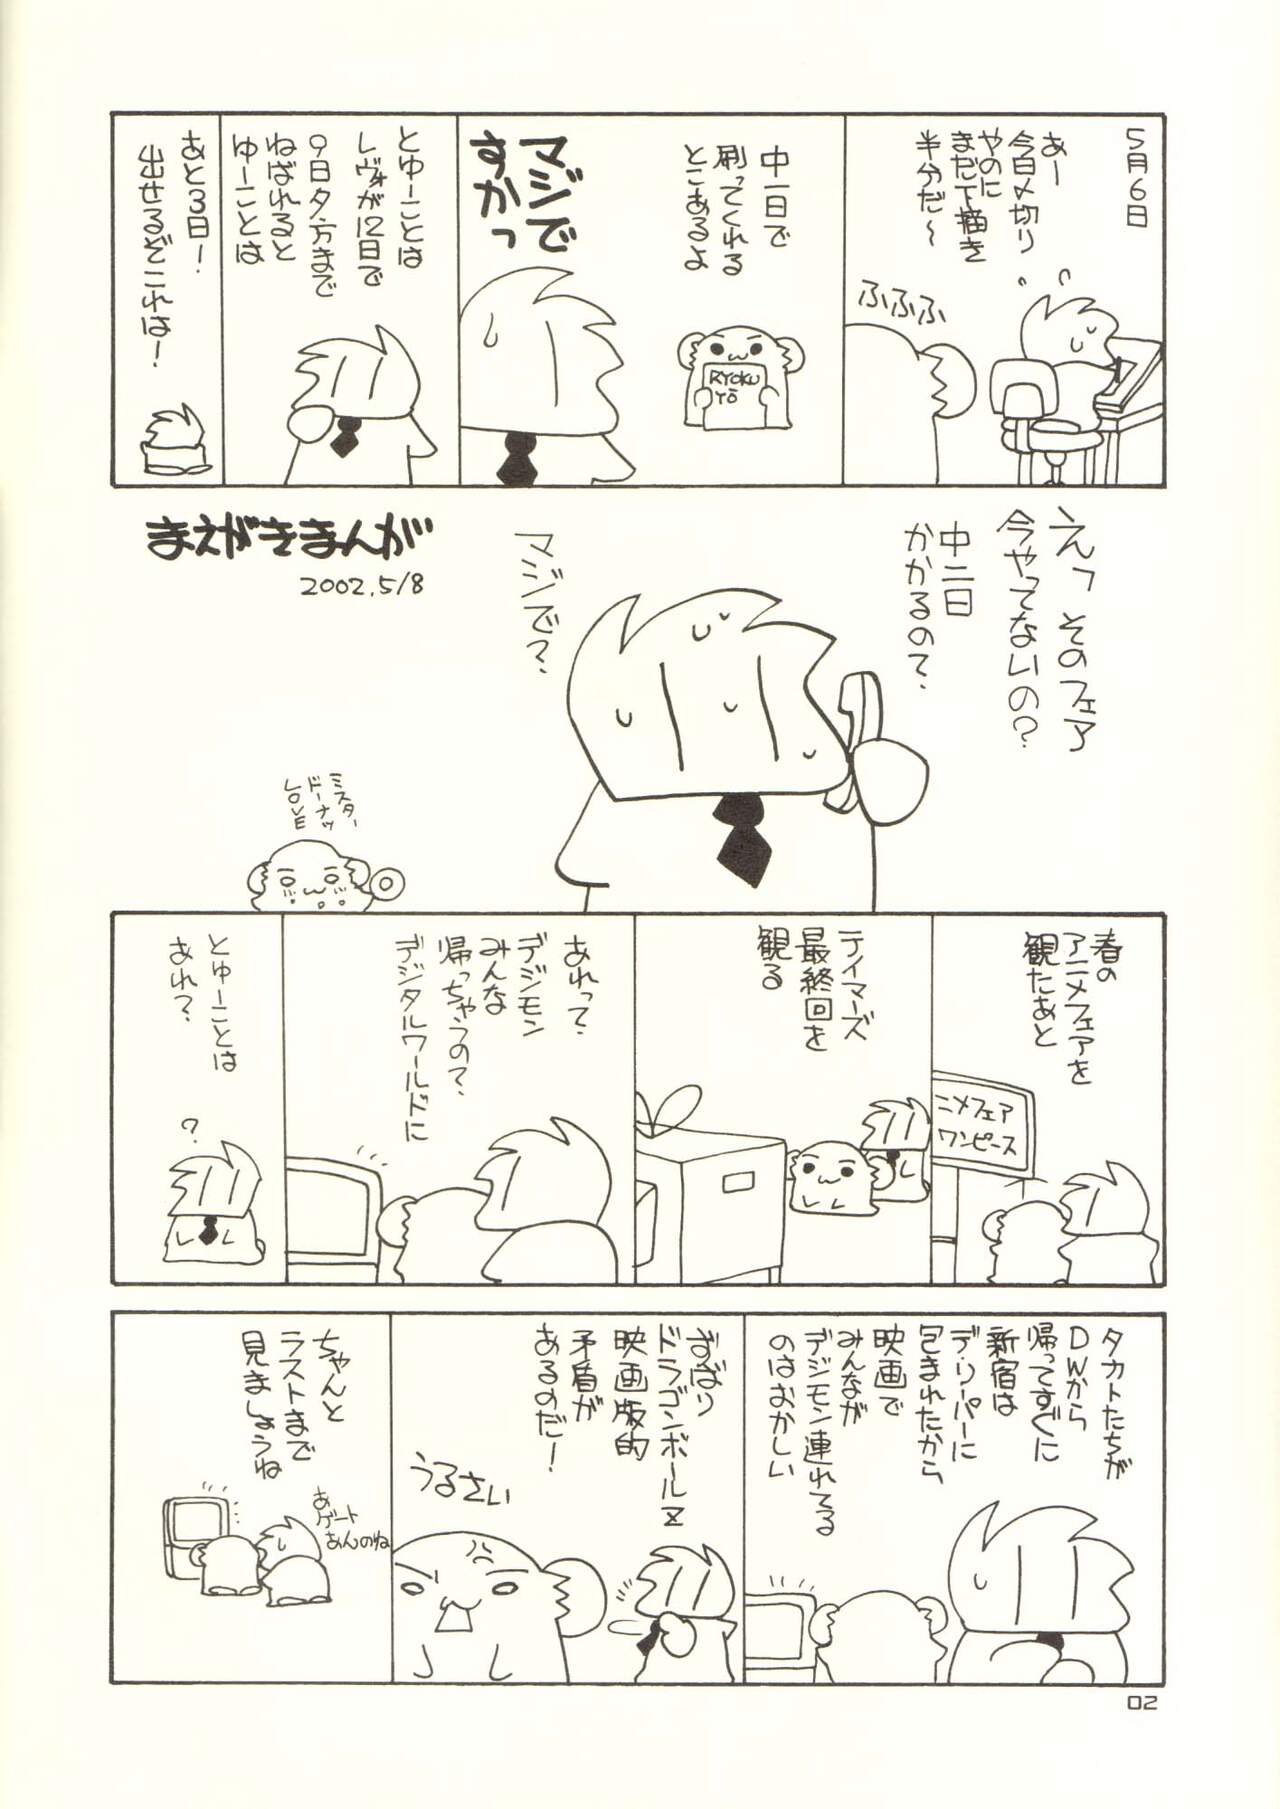 5月6日
あー
今日〆切り
やのに
まだ下描き
半分だ～
ふふふ
中一日で
刷ってくれる
とこあるよ
RYOKU
YŌ
マジで
すかっ
とゆーことは
レヴォが12日で
9日夕方まで
ねばれると
ゆーことは
あと3日!
出せるぞこれは!
まえがきまんが
2002.5/8
えっ そのフェア
今やってないの?
中二日
かかるの?
マジで?
ミスター
ドーナッツ
LOVE
春の
アニメフェアを
観たあと
ニメフェア
ワンピース
テイマーズ
最終回を
観る
あれって
デジモン
みんな
帰っちゃうの?
デジタルワールドに
とゆーことは
あれ?
?
タカトたちが
DWから
帰ってすぐに
新宿は
デ・リーパーに
包まれたから
映画で
みんなが
デジモン連れてる
のはおかしい
ずばり
ドラゴンボールZ
映画版的
矛盾が
あるのだ!
うるさい
ちゃんと
ラストまで
見ましょうね
あゲート
あんのね
02